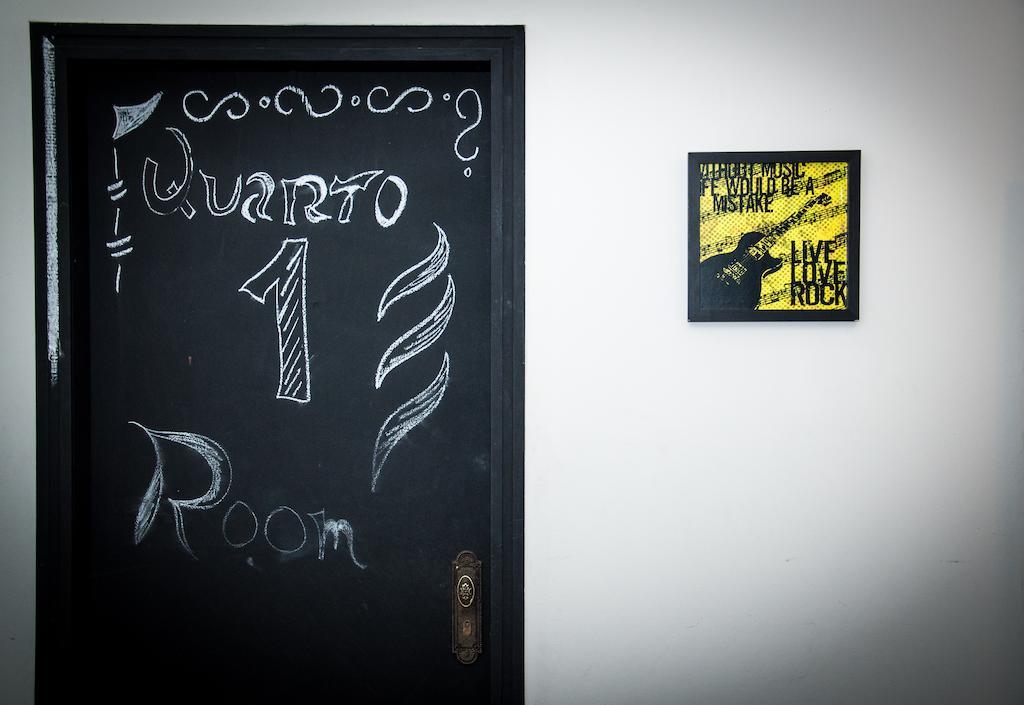 Quarto
1
Room
WITHOUT MUSIC
LIFE WOULD BE A
MISTAKE
LIVE
LOVE
ROCK